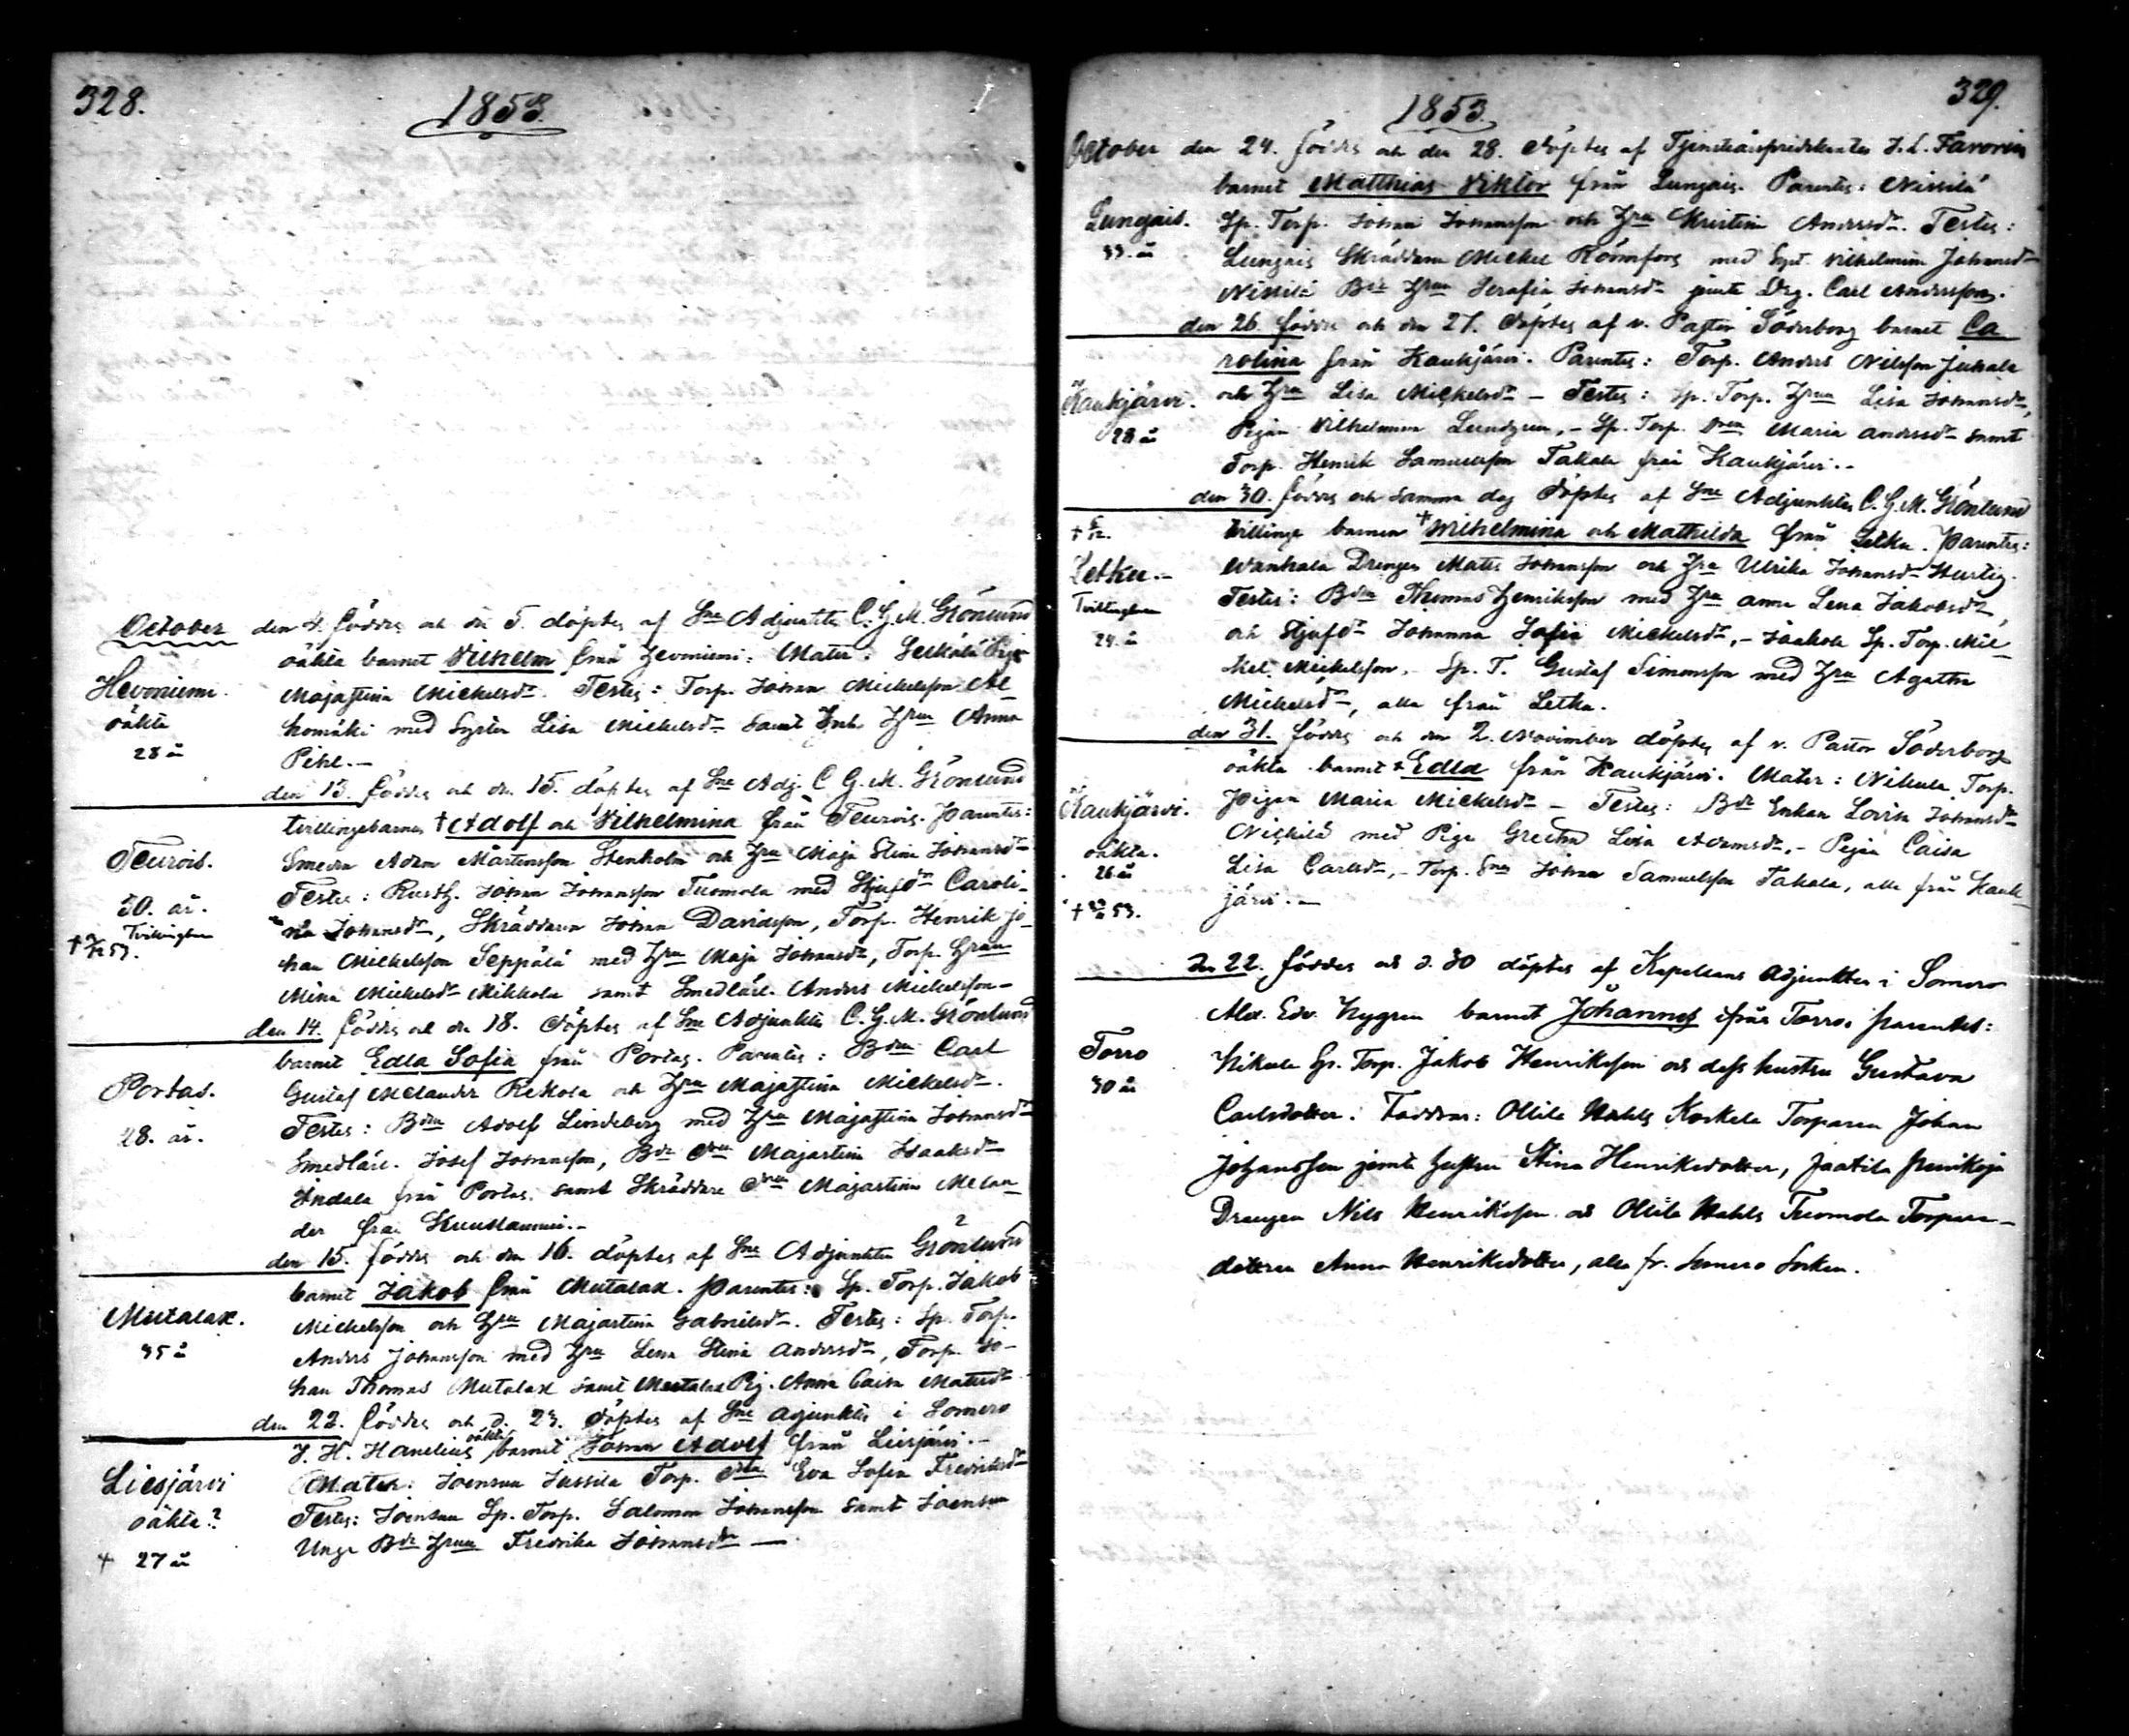 328.
1853.
October den 4. föddes och den 5. döptes af Sne Adjunkten C. G. M. Grönlund
oäkta barnet Vilhelm från Hevoniemi: Mater: Seckälä Pigan
Hevoniemi. Majastina Mickelsdr. Testes: Torp. Johan Mickelsson Al-
oäkta homäki med Syster Lisa Mickelsdr samt Inh. Hrun Anna
28 år Pihl.-
den 13. föddes och den 15. döptes af Sne Adj. C. G. M. Grönlund
tvillingebarnen † Adolf och Vilhelmina från Teurois. Parentes:
Teurois. Smeden Adam Mårtensson Stenholm och Hru Maja Stina Johansdr
30. år. Testes: Rusth. Johan Johansson Tuomola med Stjufdr Caroli-
Tvillingbarn na Johansdr, Skräddaren Johan Davidsson, Torp. Henrik Jo-
† 53. han Mickelsson Seppälä med Hru Maja Johansdr, Torp. Hrun
Mina Mickelsdr Mikkola samt Smedlärl. Anders Mickelsson-
den 14. föddes och den 18. döptes af Sne Adjunkten C. G. M. Grönlund
barnet Edla Sofia från Portas. Parentes: Bdn Carl
Portas. Gustaf Melander Rekola och Hru Majastina Mickelsdr.
28. år. Testes: Bdn Adolf Lindeberg med Hru Majastina Johansdr
Smedlärl. Josef Johansson, Bde Majastina Isaaksdr
Indala från Portas. samt Skräddare Majastina Melan-
der från Kuuslammi.-
den 15. föddes och den 16. döptes af Sne Adjunkten Grönlund
barnet Jakob från Mutalax. Parentes: Sp. Torp. Jakob
Mutalax. Mickelsson och Hru Majastina Gabrielsdr. Testes: Sp. Torp.
35 år Anders Johansson med Hru Lena Stina Andersdr, Torp. Jo-
han Thomas Mutalax samt Mutalax Pig. Anna Caisa Matsdr
den 22. föddes och d. 23. döptes af Sne Adjunkten i Somero
J. H. Hanelius oäkta barnet Johan Adolf från Liesjärvi.-
Liesjärvi Mater: Joensuu Jussila Torp. Eva Sofia Fredriksdr
oäkta? Testes: Joensuu Sp. Torp. Salomon Johansson samt Joensuu
† 27 år Unge Bde Hrun Fredrika Johansdr —
329.
1853.
October den 24. föddes och den 28. döptes af Tjensteårspredikanten J. L. Favorin
barnet Matthias Viktor från Lungais. Parentes: Nissilä
Lungais. Sp. Torp. Johan Johansson och Hru Kristina Andersdr. Testes:
33. år Lungais Skräddaren Mickel Rönnfors med Syst. Vilhelmina Johansdr
Nissilä Bde Hrun Serafia Johansdr jemte Drg. Carl Andersson.
den 26. föddes och den 27. döptes af v. Pastor Söderborg barnet Ca
rolina från Kaukjärvi. Parentes: Torp. Anders Nilsson Juhala
Kaukjärvi. och Hru Lisa Mickelsdr - Testes: Sp. Torp. Hrun Lisa Johansdr,
28 år Pigan Vilhelmina Lundgren, - Sp. Torp. Maria Andersdr samt
Torp. Henrik Samuelsson Takala från Kaukjärvi.-
den 30. föddes och samma dag döptes af Sne Adjunkten C. G. M. Grönlund
† tvillinge barnen † Wilhelmina och Mathilda från Letku. Parentes:
Letku.- Wanhala Drengen Mats Johansson och Hru Ulrika Johansdr Hurtig.
Tvillingbarn Testes: Bdn Thomas Henriksson med Hru Anna Lena Jakobsdr,
24. år och Stjufdr Johanna Sofia Mickelsdr, - Jaakola Sp. Torp. Mic-
kel Mickelsson. Sp. T. Gustaf Simonsson med Hru Agatha
Mickelsdr, alla från Letku.
den 31. föddes och den 2. November döptes af v. Pastor Söderborg
oäkta barnet † Edla från Kaukjärvi. Mater: Nikula Torp.
Kaukjärvi. Pigan Maria Mickelsdr - Testes: Bde Enkan Lovisa Johansdr
oäkta. Nickilä med Piga Gretha Lisa Adamsdr, - Pigan Caisa
26 år Lisa Carlsdr, - Torp. Sne Johan Samuelsson Takala, alla från Kauk-
† 53. järvi.—
Den 22. föddes och d. 30 döptes af Kapellans Adjunkten i Somero
Alex. Edv. Nygren barnet Johannes ifrån Torro. Parentes:
Torro Nikula Sp. Torp. Jakob Henriksson och dess hustru Gustava
30 år Carlsdotter. Faddrar: Ollila Kahls Korkela Torparen Johan
Johansson jemte hustru Stina Henriksdotter, Jaatila
Drengen Nils Henriksson och Ollila Kahls Tuomola Torpare-
dottren Anna Henriksdotter, alla fr. Somero Socken.